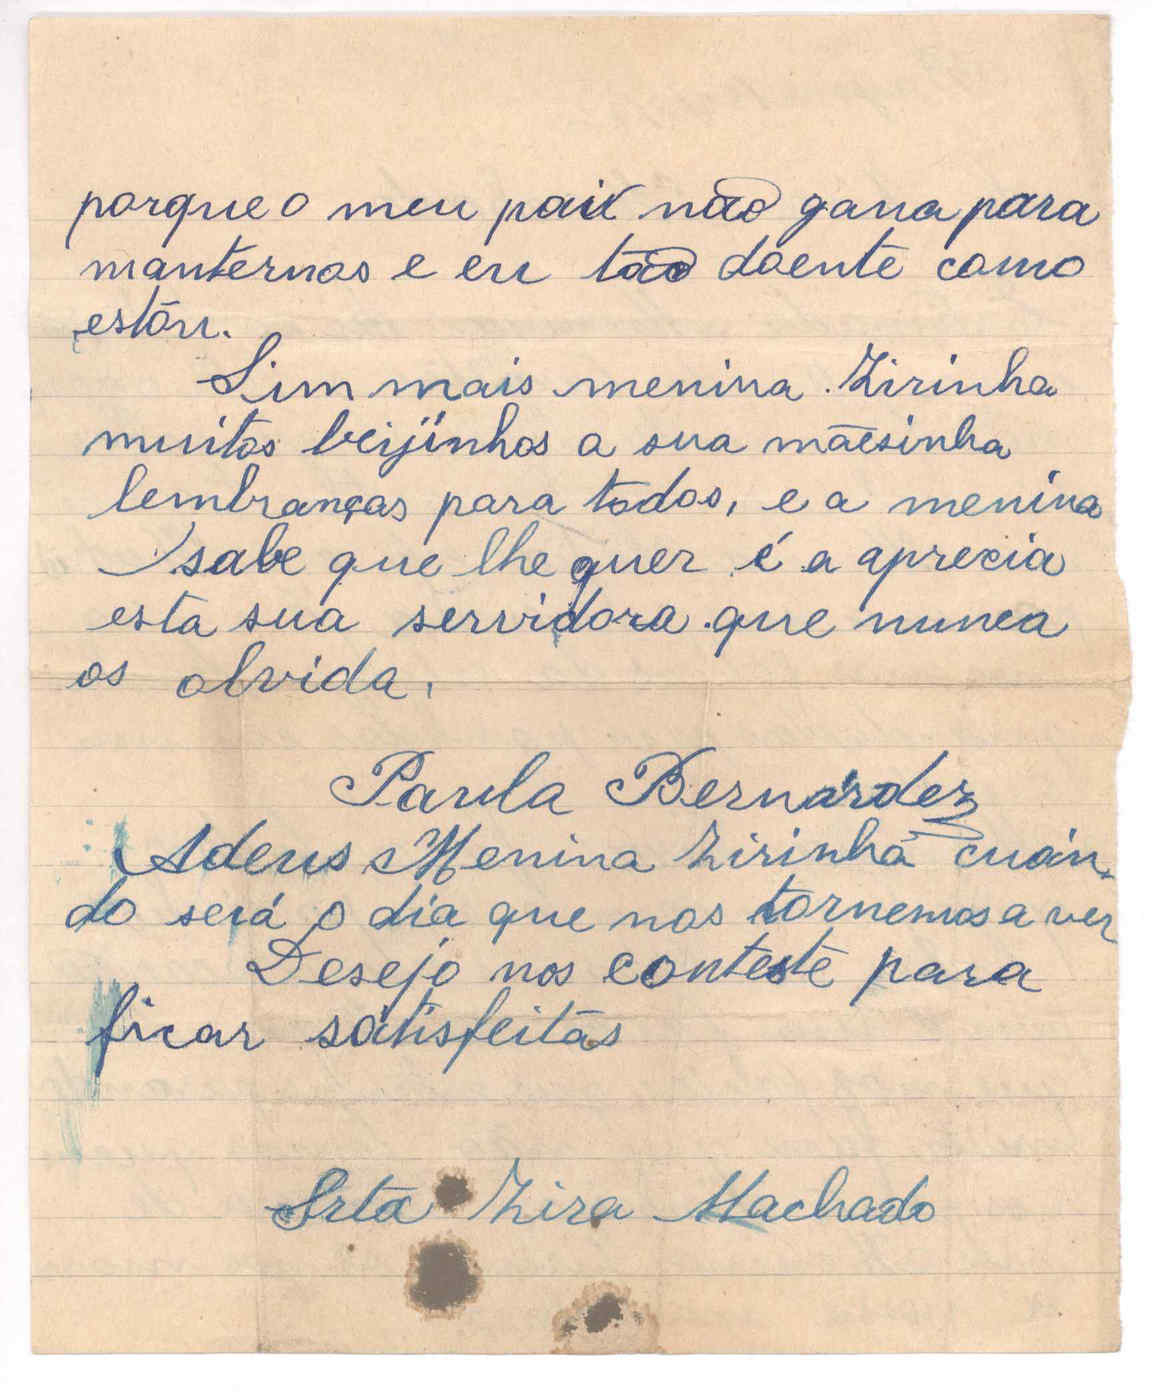 porque o meu paix não gana para
manternos e eu tão doente como
estóu.
Sim mais menina Zirinha
muitos beijinhos a sua mãesinha
lembranças para todos, e a menina
sabe que lhe quer é a aprexia
esta sua servidora que nunca
os olvida.
Paula Bernárdez
Adeus Menina Zirinha cuán-
do será o día que nos tornemos a ver
Desejo nos conteste para
ficar satisfeitas
Srta Zira Machado